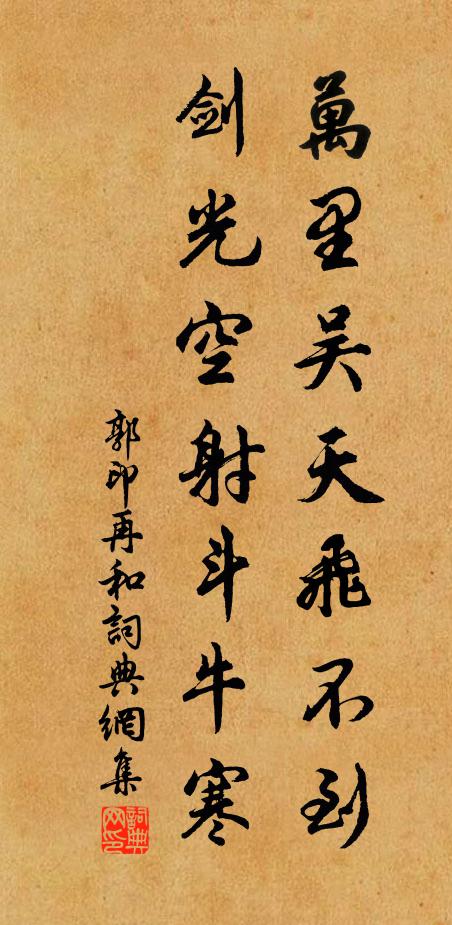 萬里吴天飛不到
劍光空射斗牛寒
郭印再和詞典網集
詞典網印